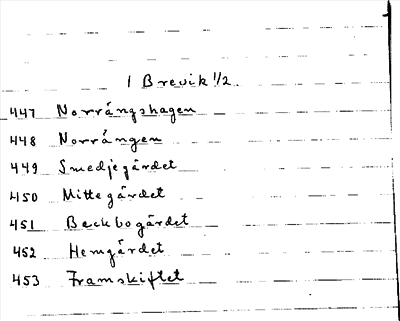 1 Brevik 1/2.
447 Norrångshagen
448 Norrången
449 Smedjegärdet
450 Mittegärdet
451 Beckbogärdet
452 Hemgärdet
453 Framskiftet